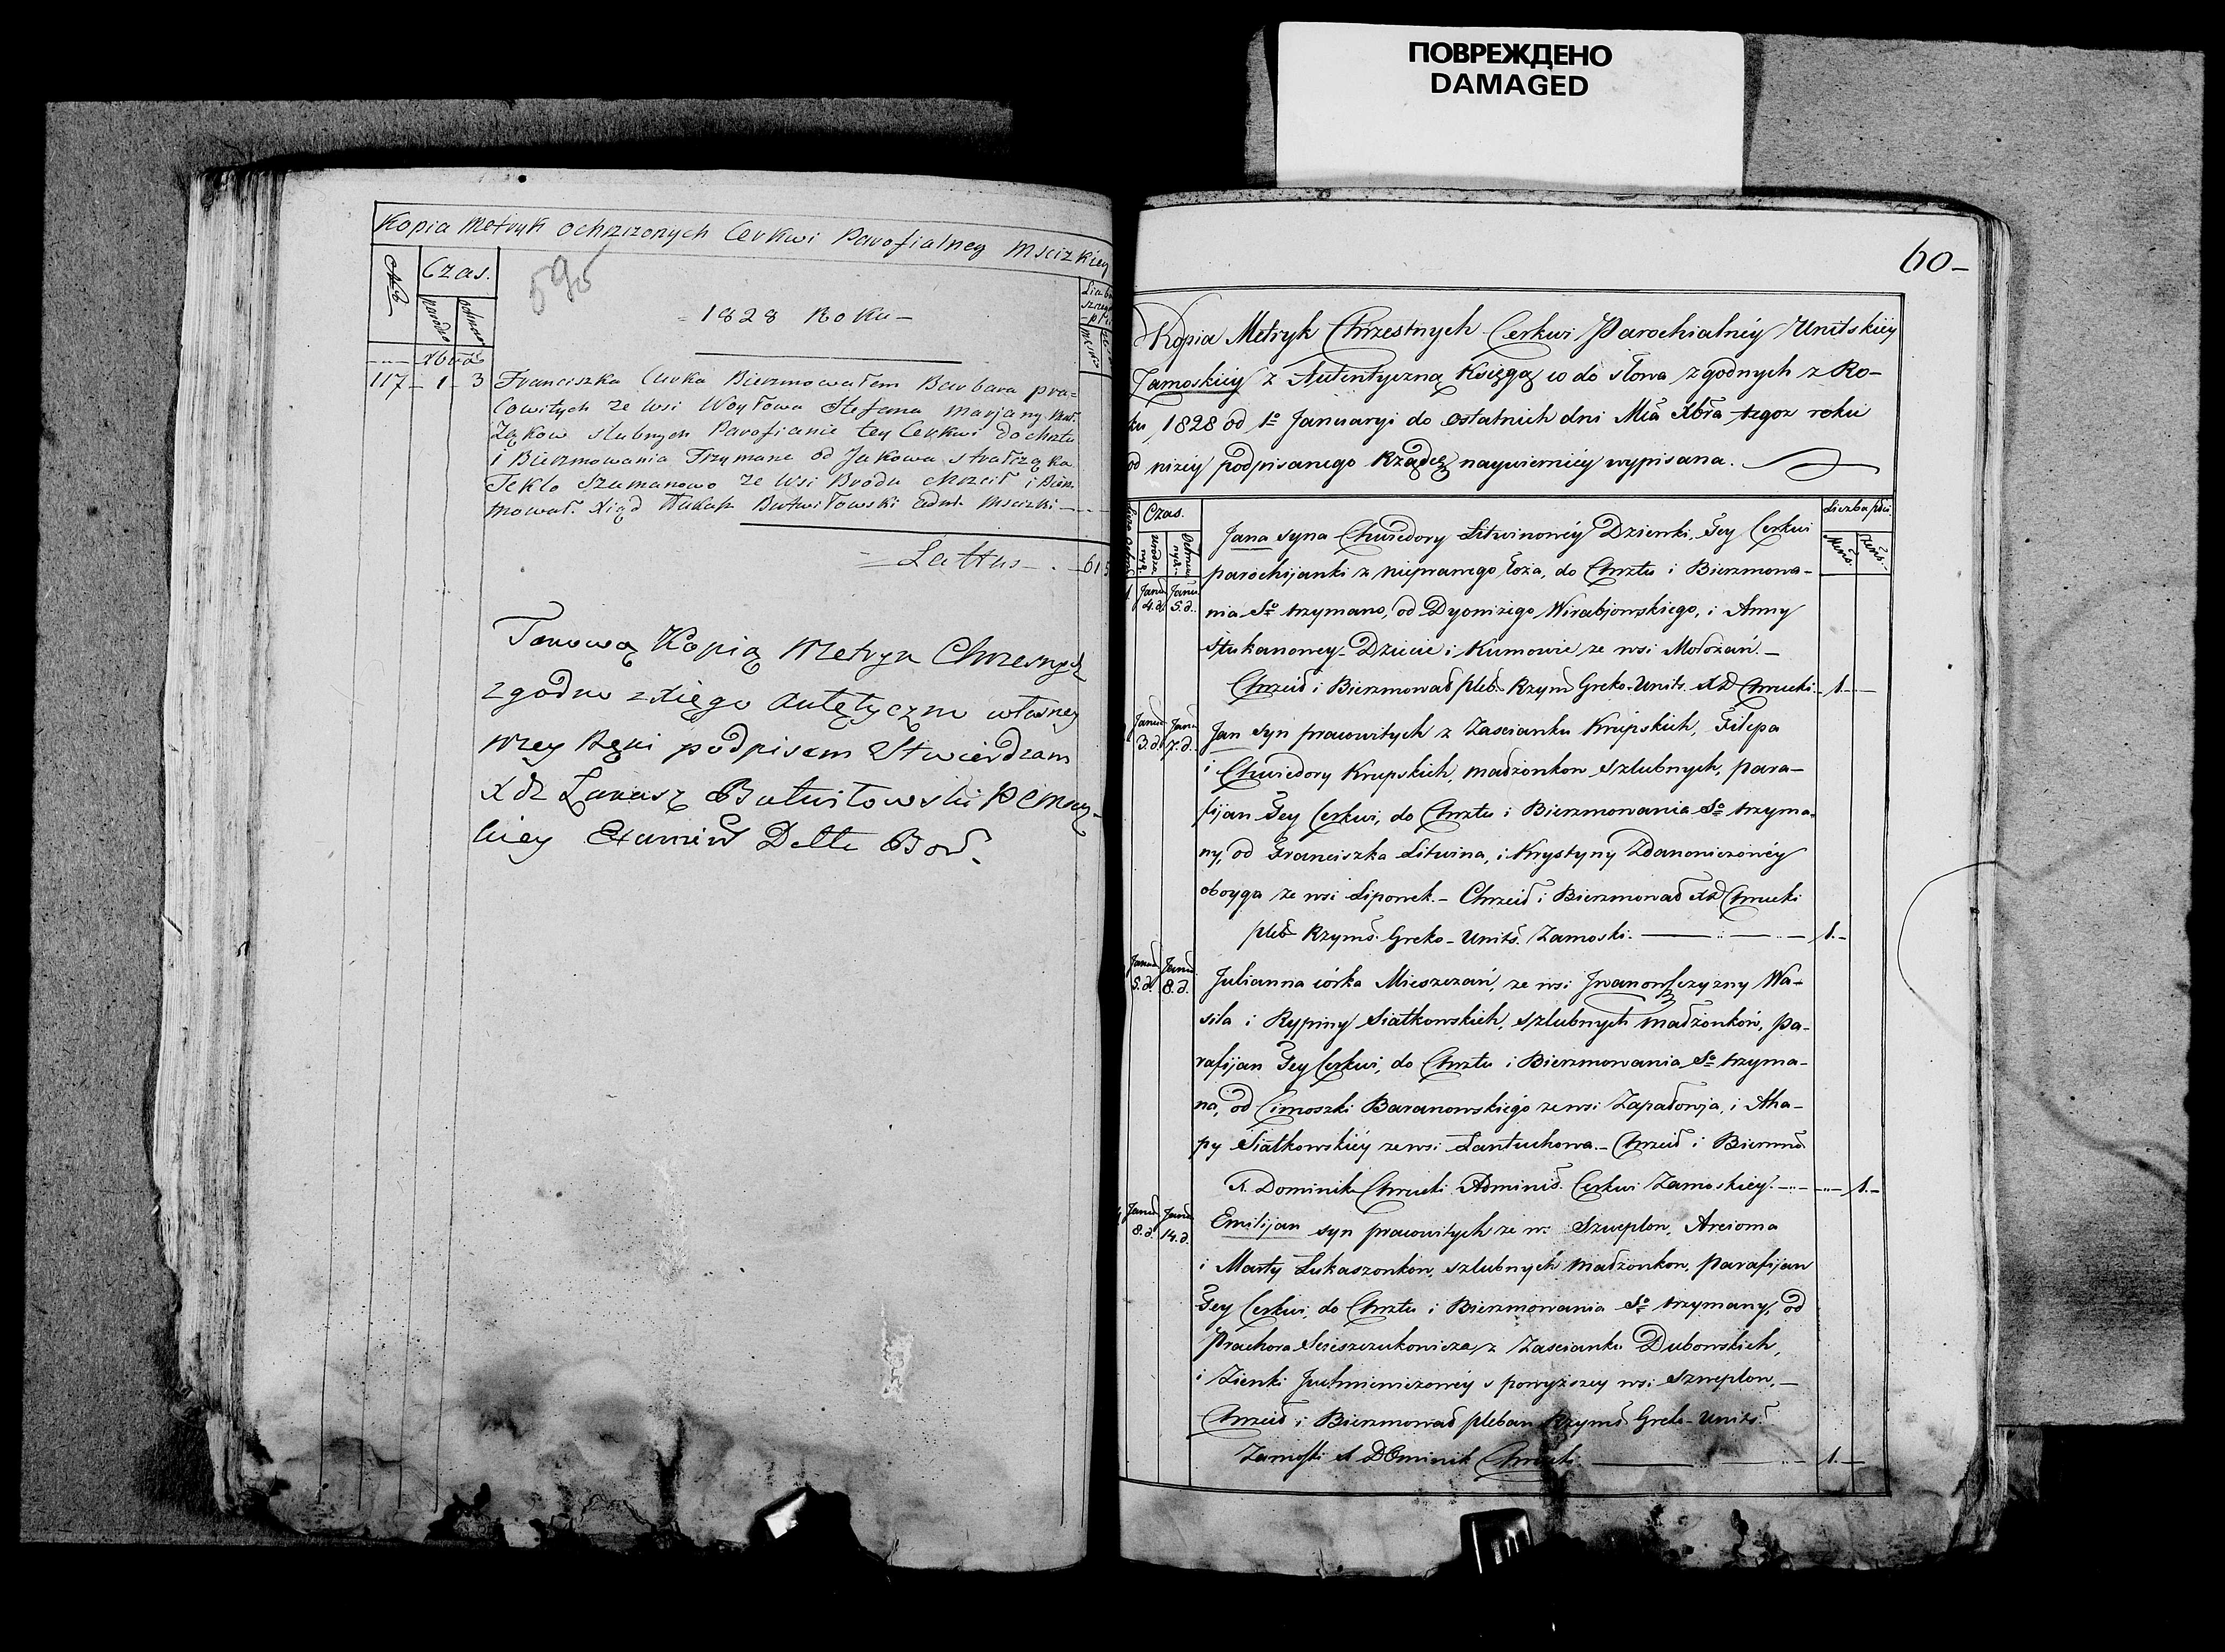 ПОВРЕЖДЕНО
DAMAGED
Kopia Metryk ochrzczonych Cerkwi Parofialney Mscizkiey
No
Czas.
595
1828 Roku
117 1 3 Franciszka Curka Bierzmowałem Barbara pra=
cowitych ze wsi Woytowa Stefana Marjany Mał
żąkow slubnych Parofianie tey Cerkwi Do chrztu
i Bierzmowania Trzymane od Jakowa
Teklo Szumanowo ze wsi Brodu chrzcił i Bierz
mował. Xiąd Butwiłowski adm Mscizki
Lattus 61
Takową Kopią Metryk Chrzesnych
zgodno z xięgo autętyczno własney
mey Ręki podpisem Stwierdzam
Xdz Łukasz Butwiłowski
kiey Dettu Bor.
60
Kopia Metryk Chrzestnych Cerkwi Parochialnéy Unitskiéy
Zamoskiéy z Autentyczną Księgą co do słowa zgodnych z Ro-
ku 1828 od 1o Januaryi do ostatnich dni Mca Xbra tegoż roku
od niżéy podpisanego Rządcę naywiernéy wypisana.
Czas.
Liczba płci.
Jana syna Chwiedory Litwinowéy Dzienki, Tey Cerkwi
parochijanki z nieprawego łoża, do Chrztu i Bierzmowa-
1. Janu 4. d. Janu 5. d. nia So trzymano, od Dyonizego Wirabjowskiego, i Anny
Stukanowey Dziecie i Kumowie ze wsi Mołożań.
Chrzcił i Bierzmował pleb. Rzym Greko-Units. XD Chrucki 1.
Janu 3. d. Janu 7. d. Jan syn pracowitych z Zascianku Krupskich, Filipa
i Chwiedory Krupskich, madżonkow szlubnych, para-
fijan Tey Cerkwi, do Chrztu i Bierzmowania So trzyma-
ny, od Franciszka Litwina, i Krystyny Zdanowiczowéy
oboyga ze wsi Liponek. Chrzcił i Bierzmował XD Chrucki
pleb Rzyms. Greko-Units. Zamoski. 1.
Janu 5. d. Janu 8. d. Julianna córka Mieszczań, ze wsi Jwanowszczyzny Wa-
sila i Rypiny Siatkowskich, szlubnych madżonkow, pa-
rafijan Tey Cerkwi, do Chrztu i Bierzmowania So trzyma-
na, od Cimoszki Baranowskiego ze wsi Zapadowja, i Aha-
py Siatkowskiéy ze wsi Lantuchowa. Chrzcił i Bierzmo.
X. Dominik Chrucki Adminis. Cerkwi Zamoskiéy. 1.
Janu 8. d. Janu 14. d. Emilijan syn pracowitych ze w. Szweplon, Arcioma
i Marty Lukaszonkow, szlubnych madżonkow, parafijan
Tey Cerkwi, do Chrztu i Bierzmowania So trzymany, od
Prachora z Zascianku Dubowskich,
i Zienki Juchniewiczowey s powyższey wsi Szweplon,
Chrzcił i Bierzmował pleban Rzyms Greko-Units.
Zamoski X Dominik Chrucki. 1.